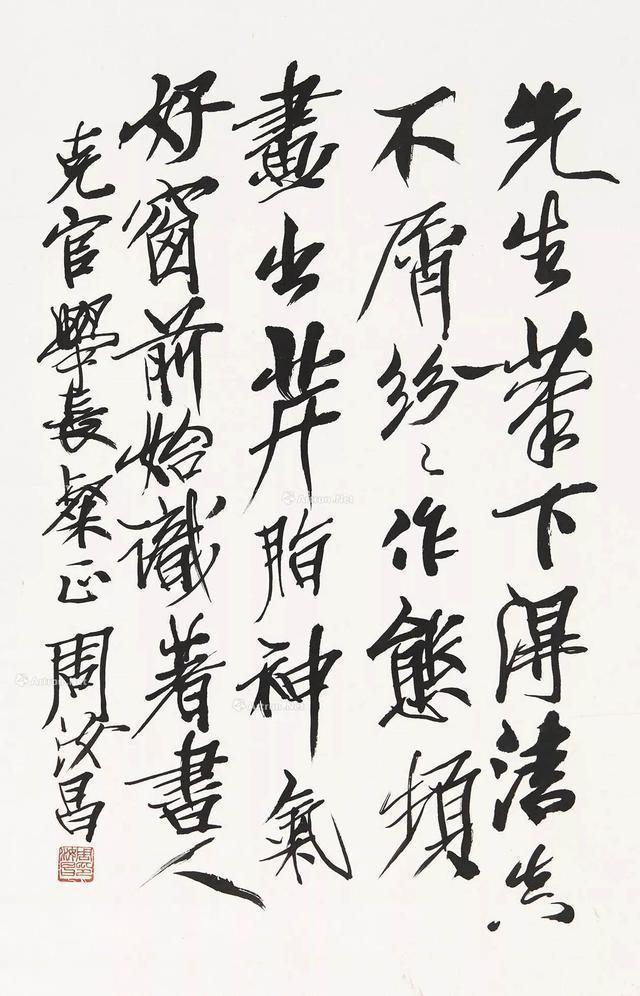 先生筆下得清真
不屑紛〻作態頻
畫出芹脂神氣
好窗前始識著書人
克官學長粲正 周汝昌
Artron.Net